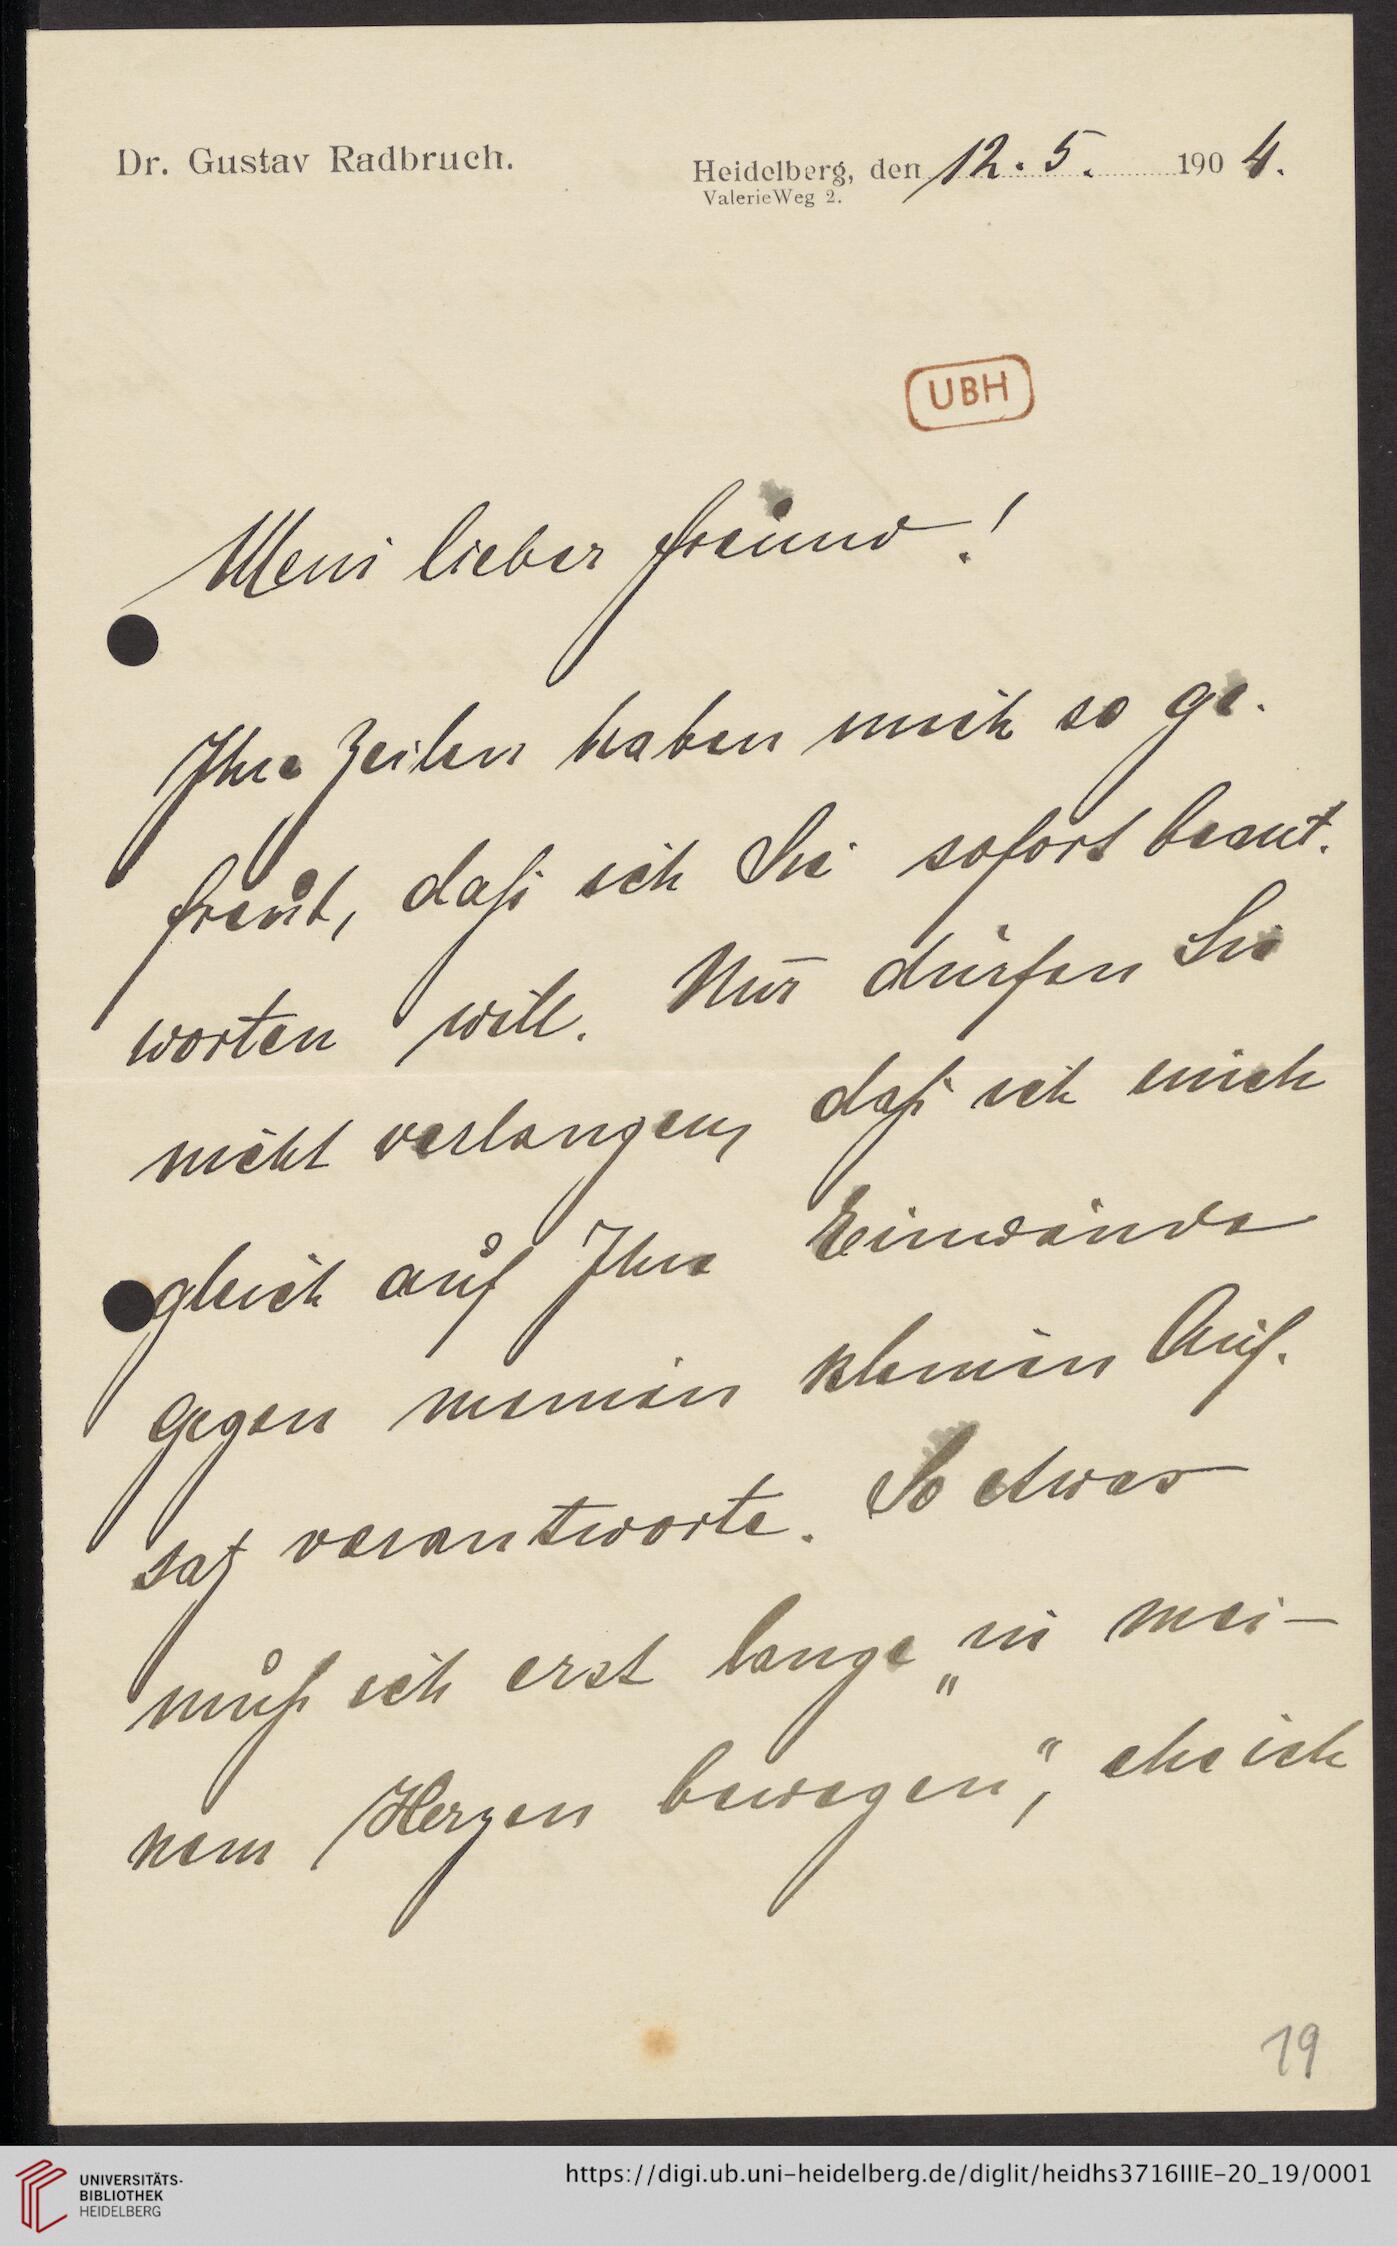 Dr. Gustav Radbruch.
Heidelberg, den 12. 5. 1904.
ValerieWeg 2.
UBH
Mein lieber Freund!
Ihre Zeilen haben mich so ge-
freut, daß ich Sie sofort beant-
worten will. Nur dürfen Sie
nicht verlangen, daß ich mich
gleich auf Ihre Einwände
gegen meinen kleinen Auf-
satz verantworte. So etwas
muß ich erst lange „in mei-
nem Herzen bewegen“, ehe ich
19
UNIVERSITÄTS-
BIBLIOTHEK
HEIDELBERG
https://digi.ub.uni-heidelberg.de/diglit/heidhs3716IIIE-20_19/0001